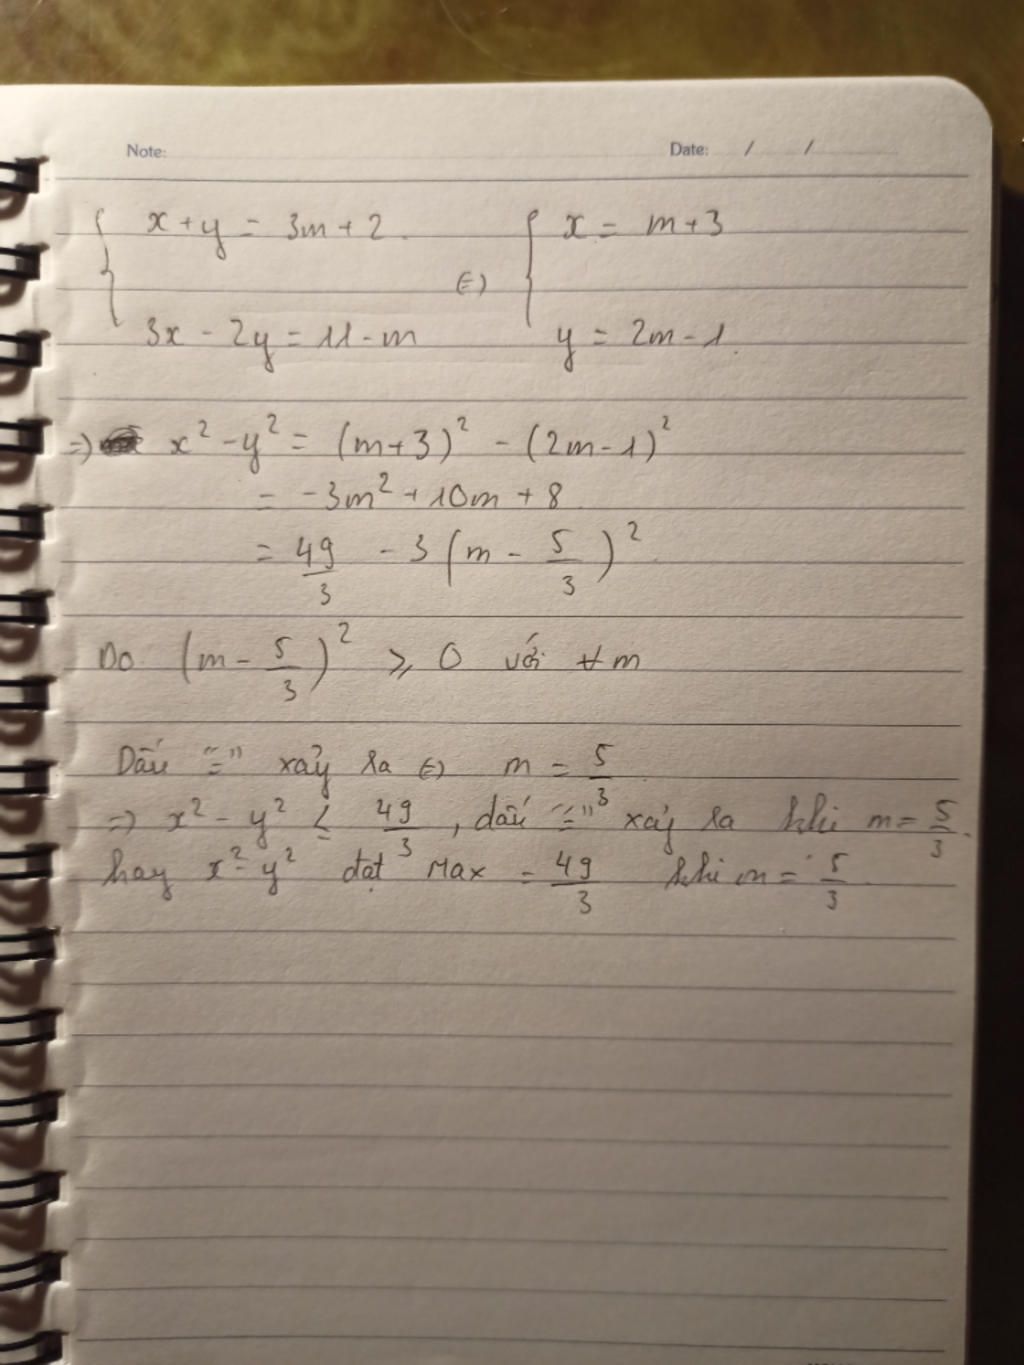 Note: Date: / /
{ x + y = 3m + 2. (=) { x = m + 3
3x - 2y = 11 - m y = 2m - 1.
=) x² - y² = (m+3)² - (2m-1)²
= -3m² + 10m + 8
= 49/3 - 3(m - 5/3)²
Do (m - 5/3)² ⩾ 0 với ∀m
Dấu "=" xảy ra (=) m = 5/3
=) x² - y² ≤ 49/3, dấu "=" xảy ra khi m = 5/3.
hay x² - y² đạt Max = 49/3 khi m = 5/3.